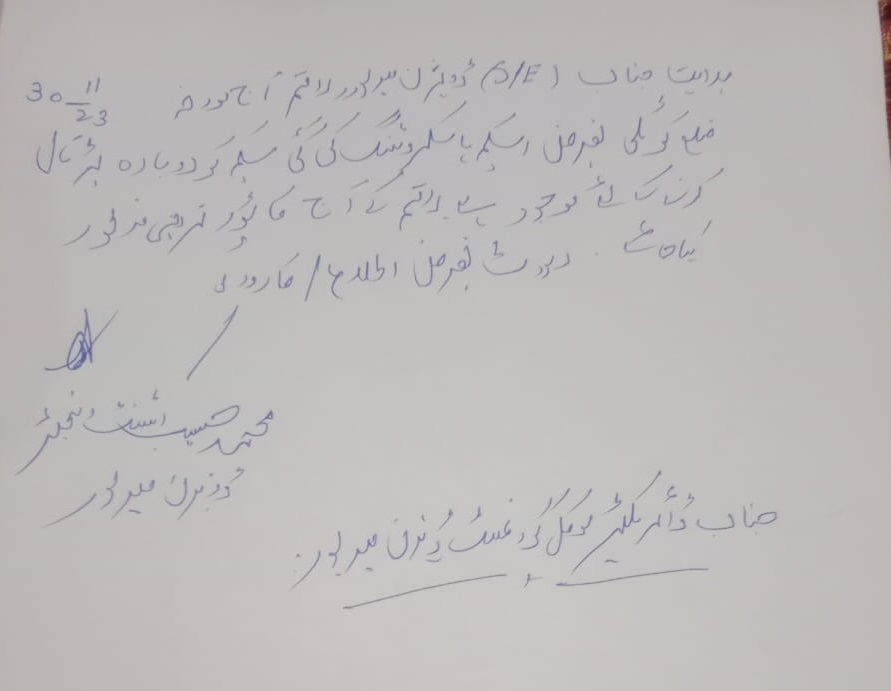 ہدایت جناب (S/E) ڈویژن میرپور راقم آج مورخہ 30-11-23
ضلع کوٹلی بغرض اسکیم ہا سکروٹنگ کی گئی سکیم کو دوبارہ پڑتال
کرنے کے لئے موجود ہے۔ راقم کے آج کا ٹور تمریقی منظور
کیا جائے۔ رپورٹ بغرض اطلاع / کارروائی
محمد حسیب اسسٹنٹ انجینئر
ڈویژن میرپور
جناب ڈائریکٹر لوکل گورنمنٹ ڈویژن میرپور۔